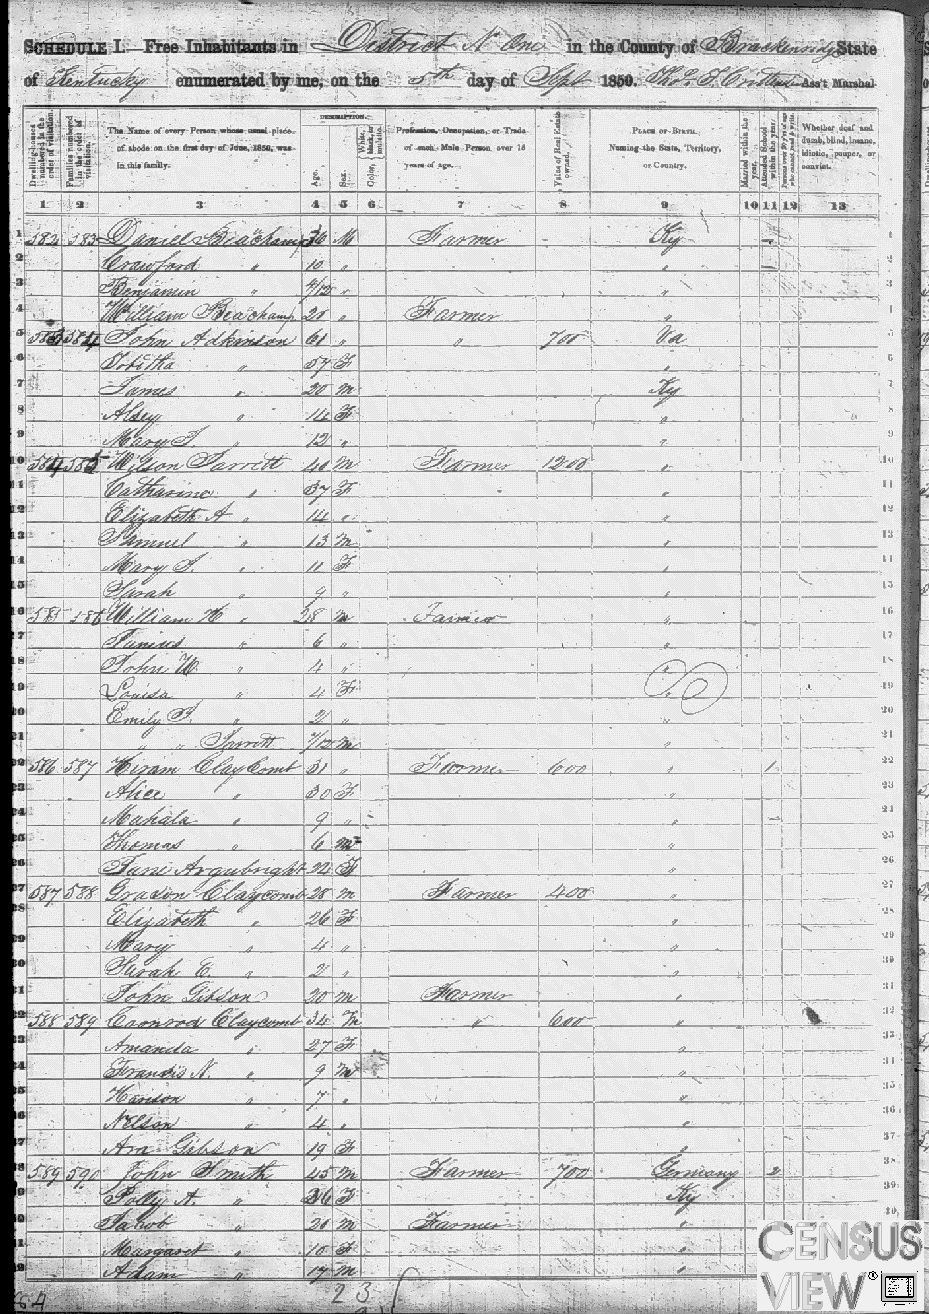 SCHEDULE I.—Free Inhabitants in District No One in the County of Brackenridge State
of Kentucky enumerated by me, on the 5th day of Sept 1850. Thos Ass't Marshal.
Dwelling-houses numbered in the order of visitation.
Families numbered in the order of visitation.
The Name of every Person whose usual place of abode on the first day of June, 1850, was in this family.
DESCRIPTION.
Age.
Sex.
Color, White, black, or mulatto.
Profession, Occupation, or Trade of each Male Person over 15 years of age.
Value of Real Estate owned.
PLACE OF BIRTH. Naming the State, Territory, or Country.
Married within the year.
Attended School within the year.
Persons over 20 y'rs of age who cannot read & write.
Whether deaf and dumb, blind, insane, idiotic, pauper, or convict.
1 2 3 4 5 6 7 8 9 10 11 12 13
1 582 583 Daniel Beachamp 36 M Farmer Ky 1
2 Crawford " 10 " " 2
3 Benjamin " 4/12 " " 3
4 William Beachamp 20 " Farmer " 4
5 583 584 John Adkinson 61 " " 700 Va 5
6 Tobitha " 57 F " 6
7 James " 20 m Ky 7
8 Alsey " 14 F " 8
9 Mary J " 12 " " 9
10 584 585 Wilson Jarrett 40 m Farmer 1200 " 10
11 Catharine " 37 F " 11
12 Elizabeth A " 14 " " 12
13 Samuel " 13 m " 13
14 Mary J. " 11 F " 14
15 Sarah " 9 " " 15
16 585 586 William H " 38 m Farmer " 16
17 Junius " 6 " " 17
18 John W. " 4 " " 18
19 Louisa " 4 F " 19
20 Emily F. " 2 " " 20
21 " " Jarrett 7/12 m " 21
22 586 587 Hiram ClayComb 31 " Farmer 600 " 1 22
23 Alice " 30 F " 23
24 Mahala " 9 " " 24
25 Thomas " 6 m " 25
26 Jane Argubright 22 F " 26
27 587 588 Claycomb 28 m Farmer 400 " 27
28 Elizabeth " 26 F " 28
29 Mary " 4 " " 29
30 Sarah E. " 2 " " 30
31 John Gibson 20 m Farmer " 31
32 588 589 Conrod Claycomb 34 m " 600 " 32
33 Amanda " 27 F " 33
34 Francis N. " 9 m " 34
35 Harison " 7 " " 35
36 Nelson " 4 " " 36
37 Ara Gibson 19 F " 37
38 589 590 John Smith 45 m Farmer 700 Germany 2 38
39 Polly A. " 36 F Ky 39
40 Jacob " 20 m Farmer " 40
Margaret " 10 F "
Adam " 17 m "
23
CENSUS
VIEW®